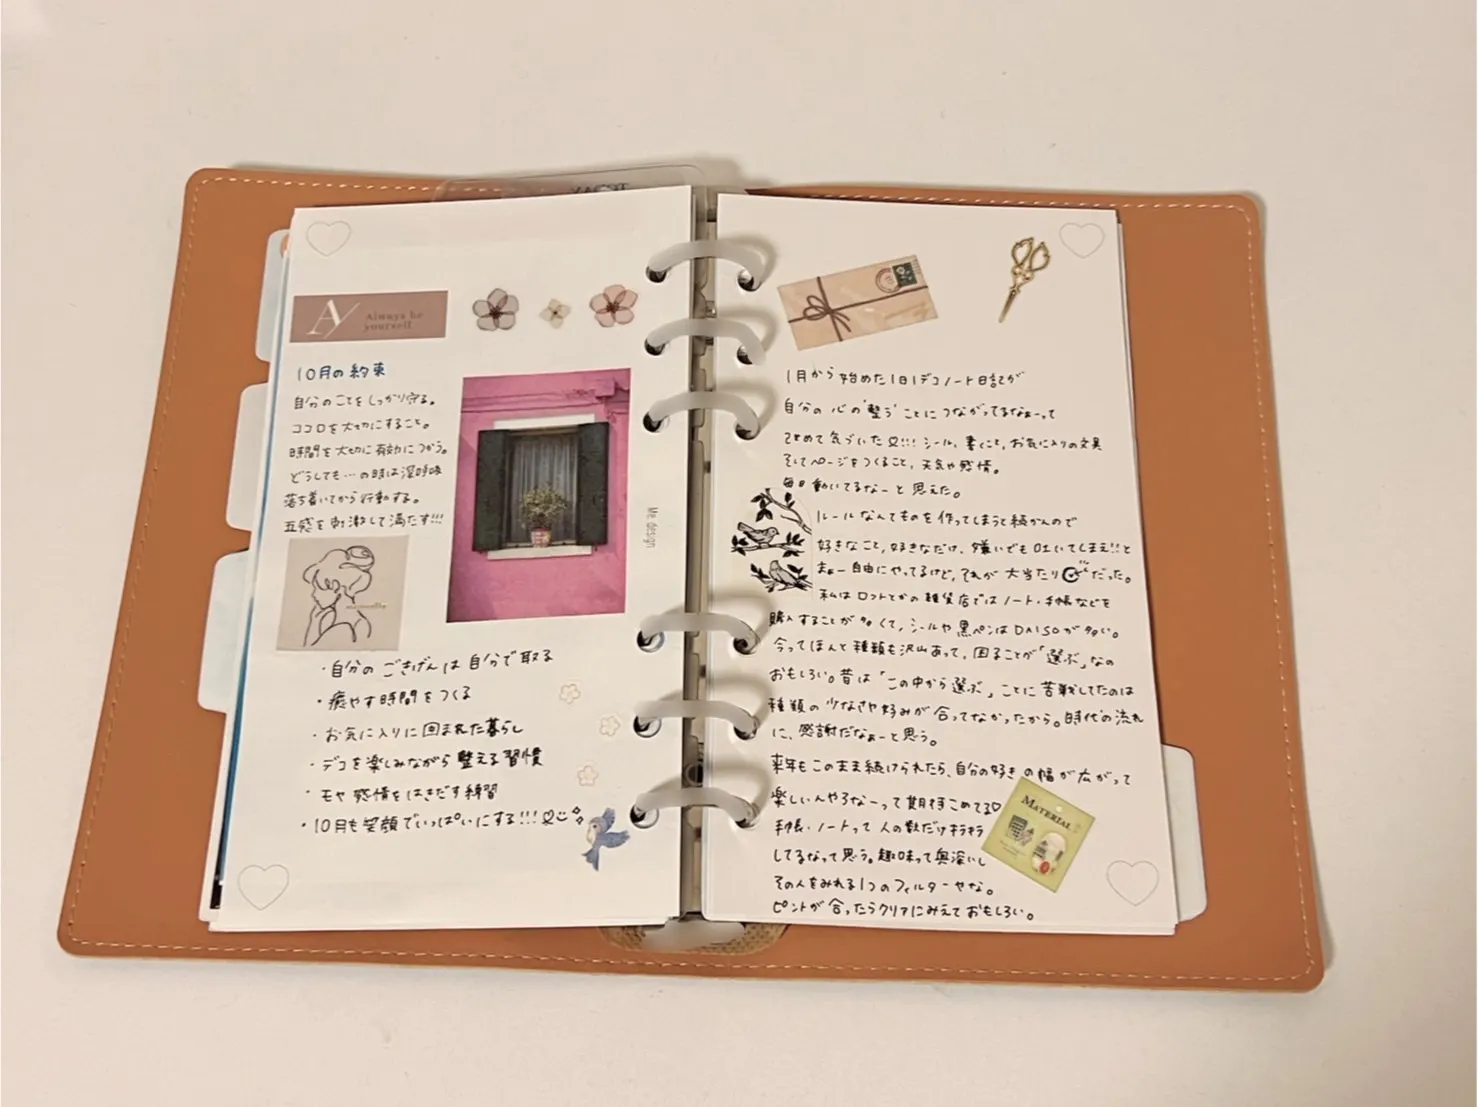 Always be
yourself
10月の約束
自分のことをしっかり守る。
ココロを大切にすること。
時間を大切に有効につかう。
どうしても…の時は深呼吸
落ち着いてから行動する。
五感を刺激して満たす!!!
Me design
・自分のごきげんは自分で取る
・癒やす時間をつくる
・お気に入りに囲まれた暮らし
・デコを楽しみながら整える習慣
・モヤ感情をはきだす練習
・10月も笑顔でいっぱいにする!!!
1月から始めた1日1デコノート日記が
自分の心の"整う"ことにつながってるなぁーって
改めて気づいた♡!!! シール、書くこと、お気に入りの文具
そしてページをつくること、天気や感情。
毎日動いてるなーと思えた。
ルールなんてものを作ってしまうと続かんので
好きなこと、好きなだけ、嫌いでも吐いてしまえ!!と
まぁー自由にやってるけど、それが大当たりだった。
私はロフトとかの雑貨店ではノート・手帳などを
購入することが多くて、シールや黒ペンはDAISOが多い。
今ってほんと種類も沢山あって、困ることが「選ぶ」なの
おもしろい。昔は「この中から選ぶ」ことに苦戦してたのは
種類の少なさや好みが合ってなかったから。時代の流れ
に、感謝だなぁーと思う。
来年もこのまま続けられたら、自分の好きの幅が広がって
楽しいんやろなーって期待こめてる♡
手帳・ノートって人の数だけキラキラ
してるなって思う。趣味って奥深いし
その人をみれる1つのフィルターやな。
ピントが合ったらクリアにみえておもしろい。
MATERIAL